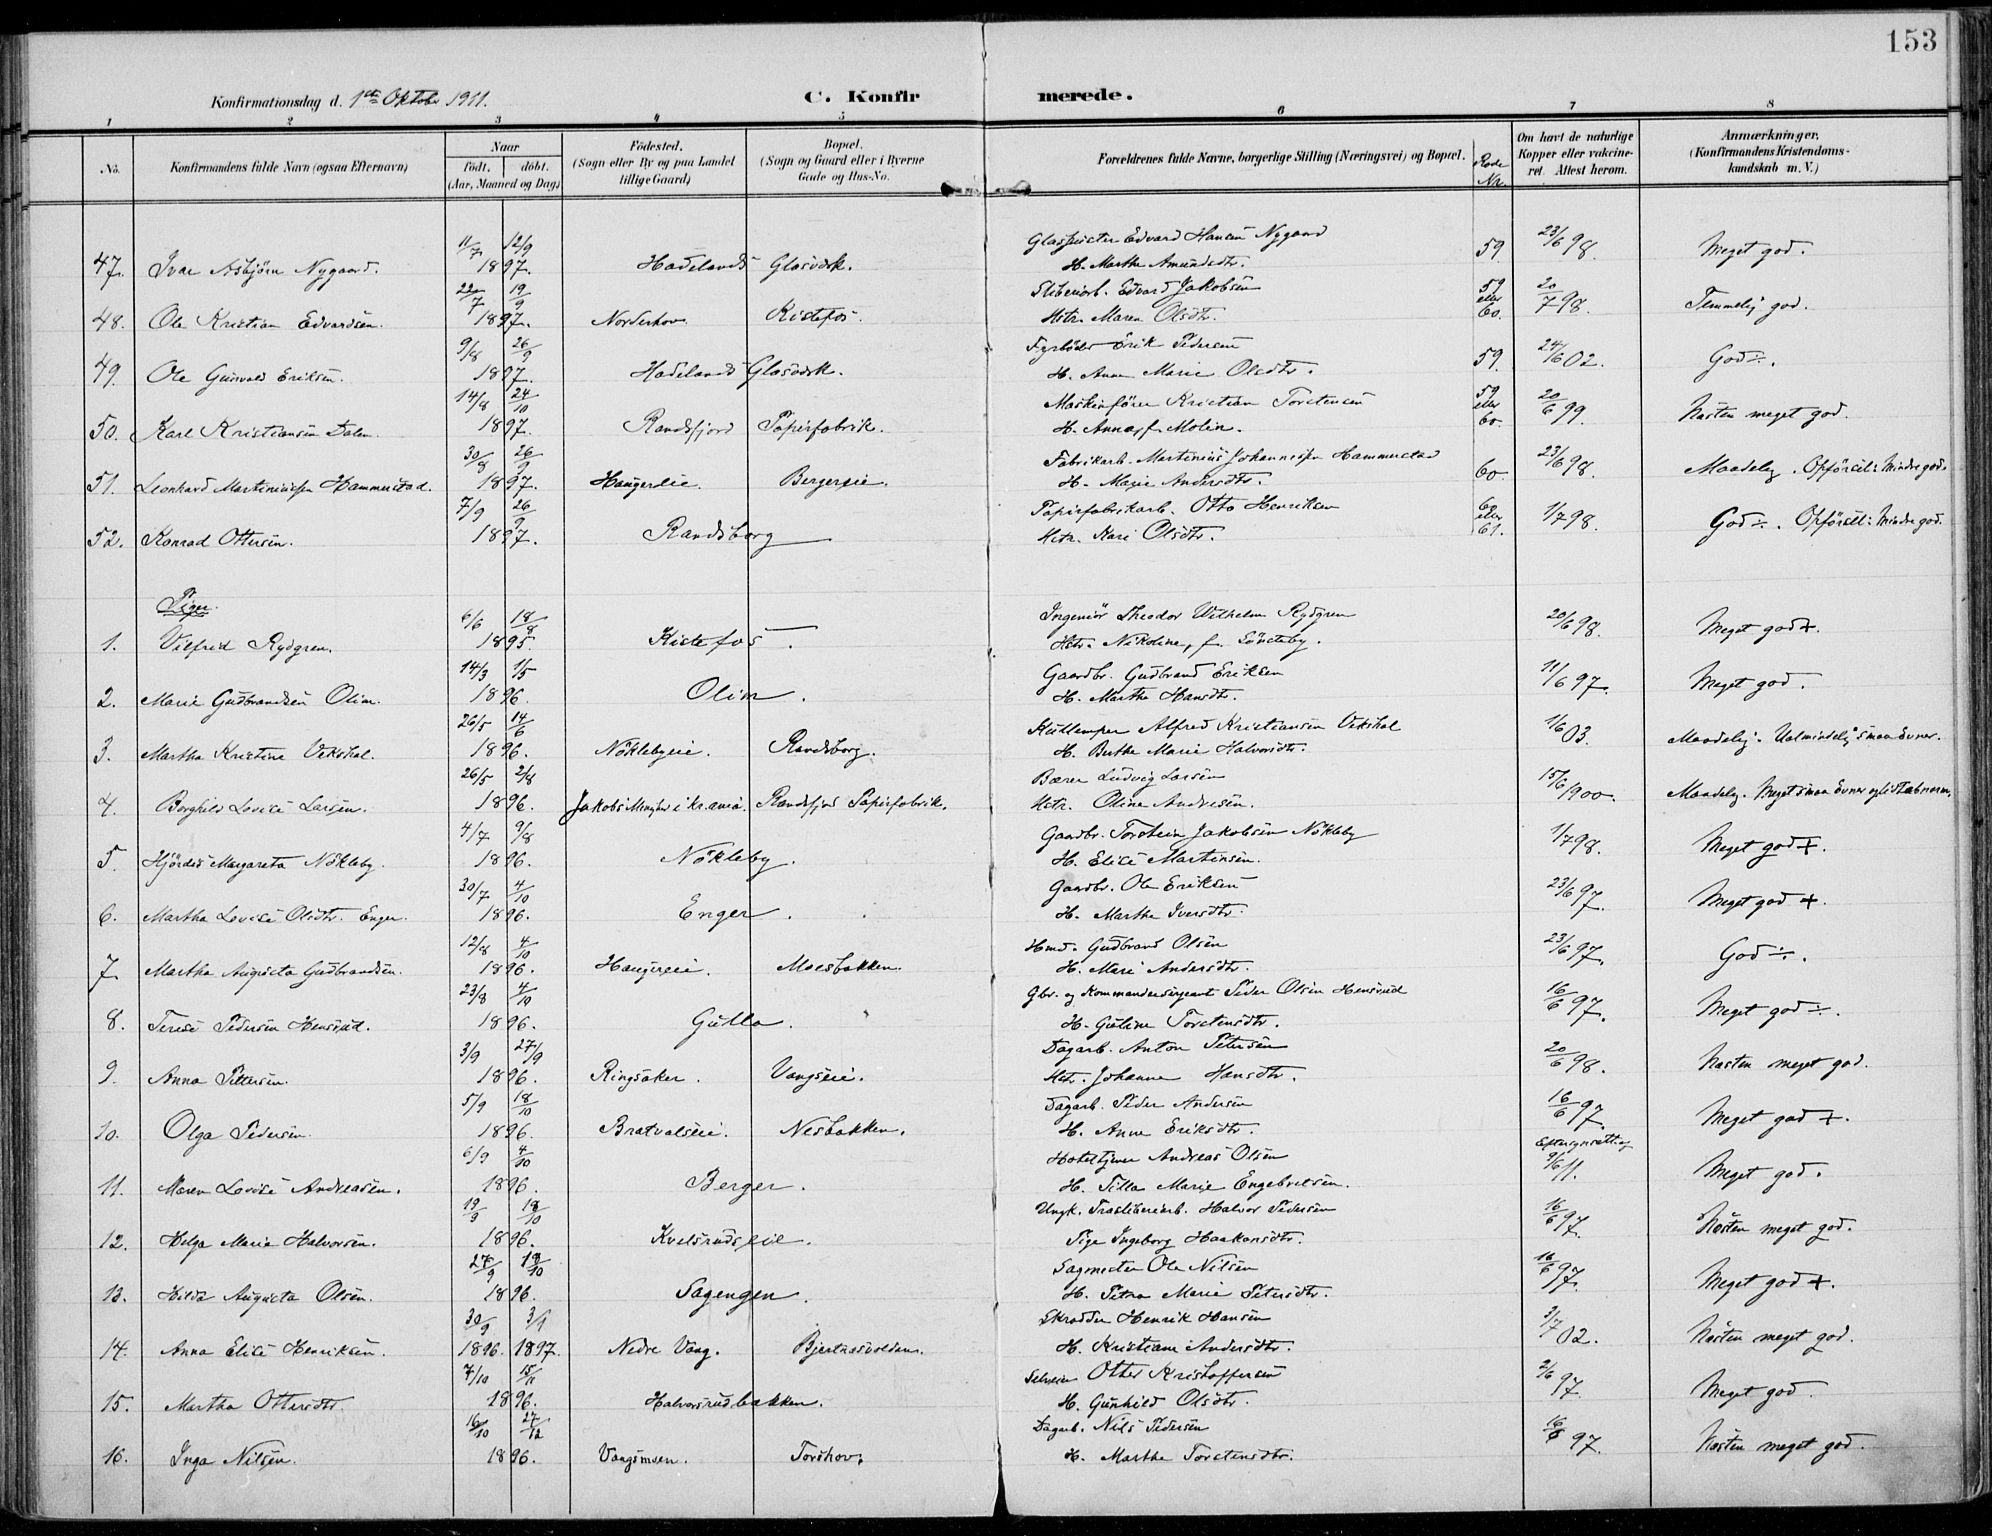 153
Konfirmationsdag d. 1ste Oktober 1911.
C. Konfirmerede.
1 2 3 4 5 6 7 8
No. Konfirmandens fulde Navn (ogsaa Efternavn) Naar født. døbt. (Aar, Maaned og Dag) Födested. (Sogn eller By og paa Landet tillige Gaard) Bopæl. (Sogn og Gaard eller i Byerne Gade og Hus-No. Forældrenes fulde Navne, borgerlige Stilling (Næringsvei) og Bopæl. Rode Nr. Om havt de naturlige Kopper eller vakcineret. Attest herom. Anmærkninger. (Konfirmandens Kristendomskundskab m. V.)
11/7 12/9 Edvard Hansen Nygaard 23/6 98.
47. Ivar Asbjörn Nygaard. 1897. Hadelands Glasværk. H. Marthe Amundsdtr. 59. Meget god.
22/7 19/9 Sliberiarb. Edvard Jakobsen 59 eller 60. 20/7 98.
48. Ole Kristian Edvardsen. 1897. Norderhov. Kistefos. Hstr. Maren Olsdtr. Temmelig god.
9/8 26/9 Fyrböder Erik Pedersen 24/6 02.
49. Ole Gunvald Eriksen. 1897. Hadelands Glasværk. H. Anne Marie Olsdtr. 59. God ÷.
14/8 24/10 Maskinförer Kristian Torstensen 59 eller 60. 20/6 99.
50. Karl Kristiansen Dalen. 1897. Randsfjord Papirfabrik. H. Anna, f. Molin. Næsten meget god.
30/8 26/9 Fabrikarb. Martinius Johannessen Hammerstad 23/6 98.
51. Leonhard Martiniussen Hammerstad. 1897. Haugereie. Bergereie. H. Marie Andersdtr. 60. Maadelig. Opförsel: Mindre god.
7/9 26/9 Papirfabrikarb. Otto Henriksen 60 eller 61. 1/7 98.
52. Konrad Ottersen. 1897. Randsborg Hstr. Kari Olsdtr. God ÷. Opförsel: Mindre god.
Piger.
6/6 18/8 Ingeniör Theodor Wilhelm Rydgren 20/6 98.
1. Vilfrid Rydgren. 1895. Kistefos. Hstr. Nikoline, f. Meget god +.
14/3 1/5 Gaardbr. Gudbrand Eriksen 11/6 97.
2. Marie Gudbrandsen Olim. 1896. Olim. H. Marthe Hansdtr. Meget god.
26/5 14/6 Alfred Kristiansen Vekshal 1/6 03.
3. Martha Kristine Vekshal. 1896. Nöklebyeie. Randsborg. H. Berthe Marie Halvorsdtr. Maadelig. Ualmindelig smaa Evner.
26/5 2/8 Ludvig Larsen 15/6 1900.
4. Borghild Lovise Larsen. 1896. Jakobs Menighed i Kr.ania. Randsfjord Papirfabrik. Hstr. Oline Andresen. Maadelig. Meget smaa Evner
4/7 9/8 Gaardbr. Torstein Jakobsen Nökleby 1/7 98.
5. Hjördis Margareta Nökleby. 1896. Nökleby. H. Elise Martinsen. Meget god +.
30/7 4/10 Gaardbr. Ole Eriksen 23/6 97.
6. Martha Lovise Olsdtr. Enger. 1896. Enger. H. Marthe Iversdtr. Meget god +.
12/8 4/10 Hmd. Gudbrand Olsen 23/6 97.
7. Martha Augusta Gudbrandsen. 1896. Haugereie. Moesbakken. H. Mari Andersdtr. God ÷.
23/8 4/10 Gbr. og Kommandersergeant Peder Olsen Hensrud 16/6 97.
8. Terese Pedersen Hensrud. 1896. Gulla. H. Guline Torstensdtr. Meget god ÷.
3/9 27/9 Dagarb. Anton Petersen 20/6 98.
9. Anna Pettersen. 1896. Ringsaker. Vangseie. Hstr. Johanne Hansdtr. Næsten meget god.
5/9 18/10 Dagarb. Peder Andersen 16/6 97.
10. Olga Pedersen. 1896. Bratvalseie. Nesbakken. H. Anne Eriksdtr. Meget god +.
6/9 4/10 Andreas Olsen 9/6 11.
11. Maren Lovise Andreasen. 1896. Berger. H. Marie Engebretsen. Meget god.
19/9 18/10 Ungk. Træsliberiarb. Halvor Pedersen 16/6 97.
12. Helga Marie Halvorsen. 1896. Kvelsrudseie. Pige Ingeborg Haakonsdtr. Næsten meget god.
27/9 18/10 Sagmester Ole Nilsen 16/6 97.
13. Hilda Augusta Olsen. 1896. Sagengen. H. Petra Marie Petersdtr. Meget god +.
30/9 3/1 Skrædder Henrik Hansen 3/7 02.
14. Anna Elise Henriksen. 1896. 1897. Nedre Vang. Bjertnæsvolden. H. Kristiane Andersdtr. Næsten meget god.
7/10 15/11 Selveier Otter Kristoffersen 2/6 97.
15. Martha Ottersdtr. 1896. Halvorsrudbakken. H. Gunhild Olsdtr. Meget god.
16/10 27/12 Dagarb. Nils Pedersen 16/6 97.
16. Inga Nilsen. 1896. Vangsmoen. Torshov. H. Marthe Torstensdtr. Næsten meget god.